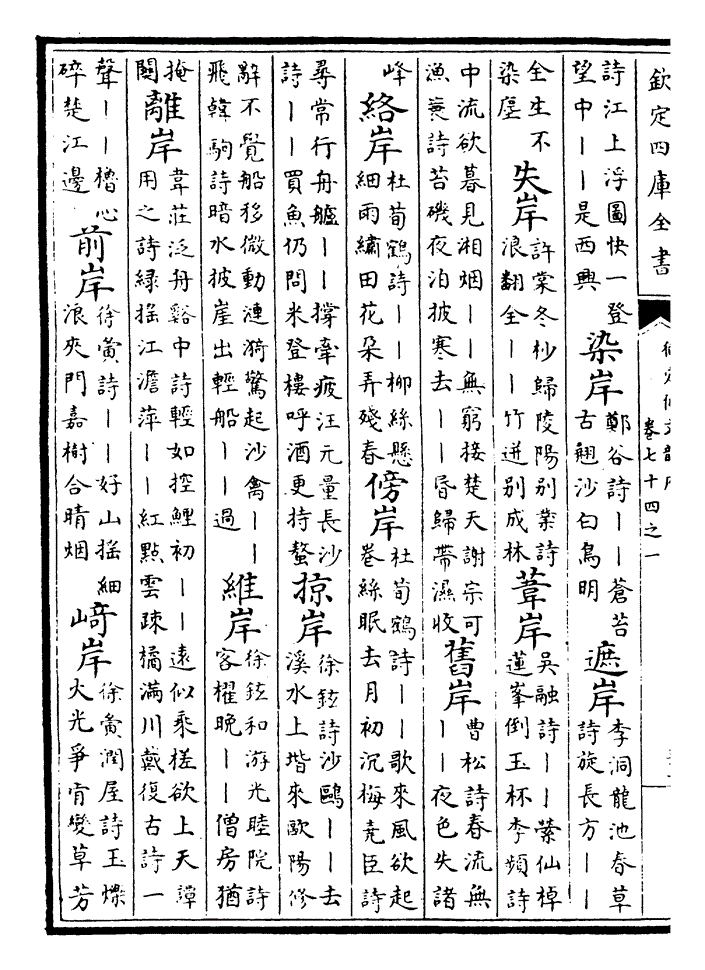 欽定四庫全書
卷七十四之一
詩江上浮圖快一登
望中丨丨是西興
染岸
鄭谷詩丨丨蒼苔
古翹沙白鳥明
遮岸
李洞龍池春草
詩旋長方丨丨
全生不
染塵
失岸
許棠冬杪歸陵陽别業詩
浪翻全丨丨竹迸别成林
葦岸
吳融詩丨丨縈仙棹
蓮峯倒玉杯李頻詩
中流欲暮見湘烟丨丨無窮接楚天謝宗可
漁蓑詩苔磯夜泊披寒去丨丨昏歸帶濕收
舊岸
曹松詩春流無
丨丨夜色失諸
峰
絡岸
杜荀鶴詩丨丨柳絲懸
細雨繡田花朵弄殘春
傍岸
杜荀鶴詩丨丨歌來風欲起
卷絲眠去月初沉梅堯臣詩
尋常行舟艫丨丨撐牽疲汪元量長沙
詩丨丨買魚仍問米登樓呼酒更持螯
掠岸
徐鉉詩沙鷗丨丨去
溪水上堦來歐陽修
辭不覺船移微動漣漪驚起沙禽丨丨
飛韓駒詩暗水披崖出輕船丨丨過
維岸
徐鉉和游光睦院詩
客櫂晚丨丨僧房猶
掩
關
離岸
韋莊泛舟谿中詩輕如控鯉初丨丨遠似乘槎欲上天譚
用之詩緑揺江澹萍丨丨紅點雲疎橘滿川戴復古詩一
聲丨丨櫓心
碎楚江邊
前岸
徐夤詩丨丨好山揺細
浪夾門嘉樹合晴烟
﨑岸
徐夤潤屋詩玉爍
火光爭肯變草芳